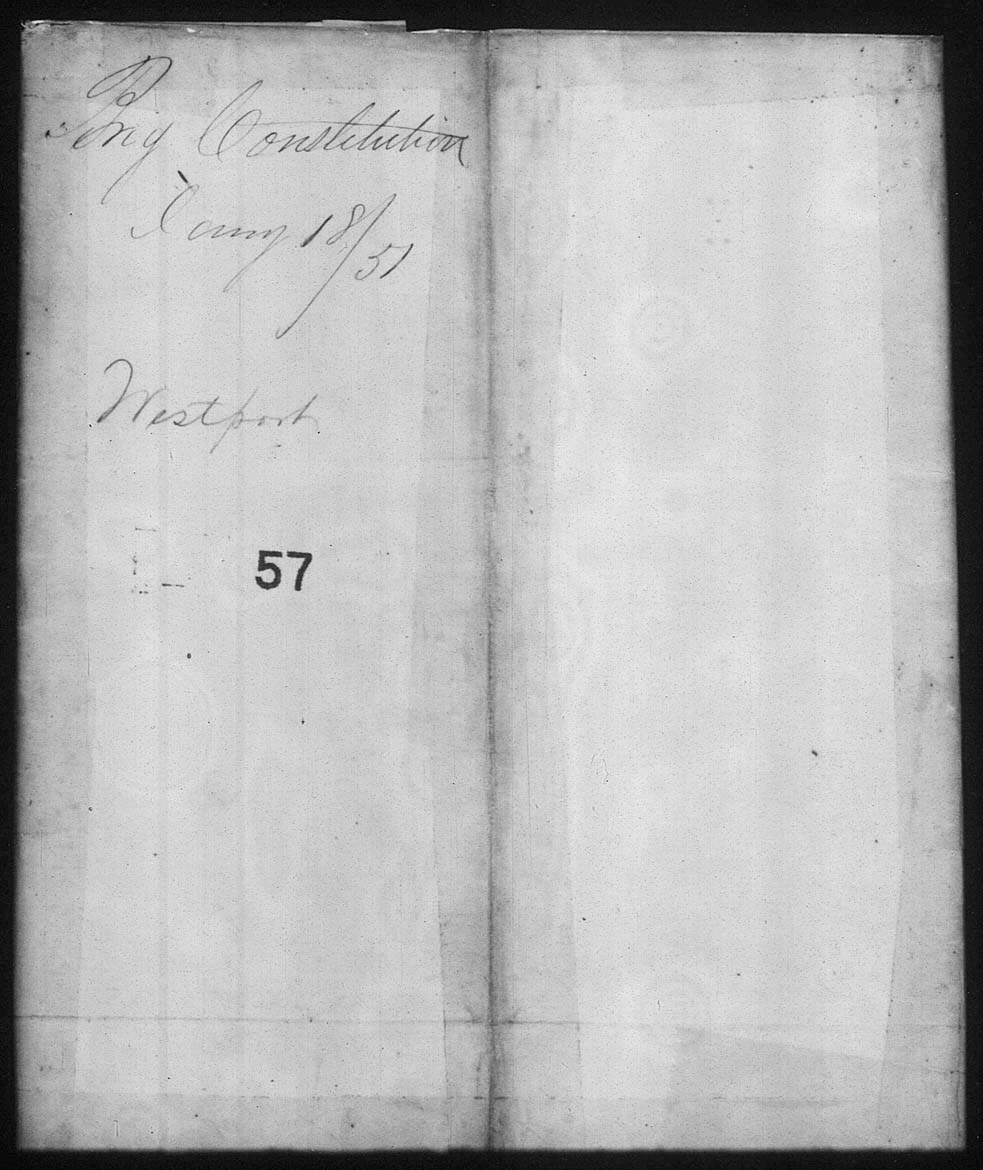 Brig Constitution
Jany 18/51
Westport
57